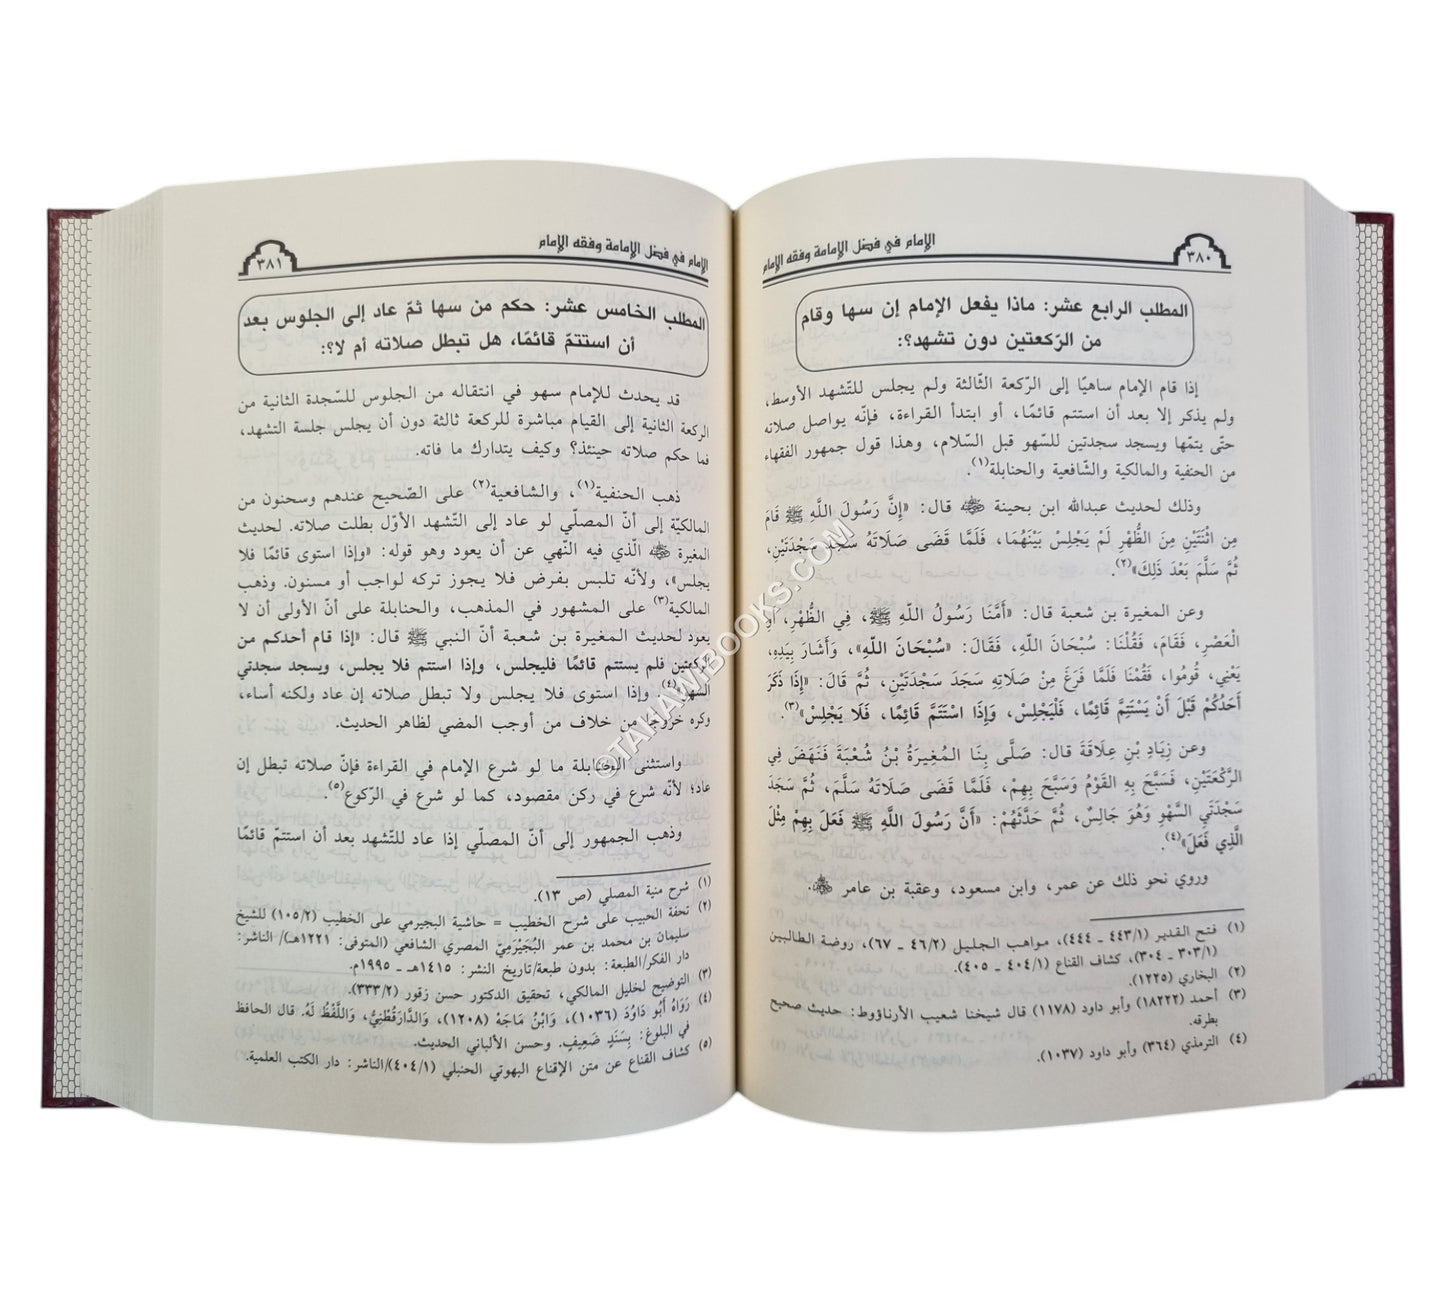 ٣٨٠
الإمام في فضل الإمامة وفقه الإمام
المطلب الرابع عشر: ماذا يفعل الإمام إن سها وقام
من الرّكعتين دون تشهد؟:
إذا قام الإمام ساهيًا إلى الرّكعة الثّالثة ولم يجلس للتّشهد الأوسط،
ولم يذكر إلا بعد أن استتم قائمًا، أو ابتدأ القراءة، فإنّه يواصل صلاته
حتّى يتمّها ويسجد سجدتين للسّهو قبل السّلام، وهذا قول جمهور الفقهاء
من الحنفية والمالكية والشّافعية والحنابلة(١).
وذلك لحديث عبدالله ابن بحينة ﵁ قال: «إِنَّ رَسُولَ اللَّهِ ﷺ قَامَ
مِن اثْنَتَيْنِ مِنَ الظُّهْرِ لَمْ يَجْلِسْ بَيْنَهُمَا، فَلَمَّا قَضَى صَلَاتَهُ سَجَدَ سَجْدَتَيْنِ،
ثُمَّ سَلَّمَ بَعْدَ ذَلِكَ»(٢).
وعن المغيرة بن شعبة قال: «أَمَّنَا رَسُولُ اللَّهِ ﷺ، فِي الظُّهْرِ، أَوِ
الْعَصْرِ، فَقَامَ، فَقُلْنَا: سُبْحَانَ اللَّهِ، فَقَالَ: «سُبْحَانَ اللَّهِ»، وَأَشَارَ بِيَدِهِ،
يَعْنِي، قُومُوا، فَقُمْنَا فَلَمَّا فَرَغَ مِنْ صَلَاتِهِ سَجَدَ سَجْدَتَيْنِ، ثُمَّ قَالَ: «إِذَا ذَكَرَ
أَحَدُكُمْ قَبْلَ أَنْ يَسْتَتِمَّ قَائِمًا، فَلْيَجْلِسْ، وَإِذَا اسْتَتَمَّ قَائِمًا، فَلَا يَجْلِسْ»(٣).
وعن زِيَادِ بْنِ عِلَاقَةَ قال: صَلَّى بِنَا المُغِيرَةُ بْنُ شُعْبَةَ فَنَهَضَ فِي
الرَّكْعَتَيْنِ، فَسَبَّحَ بِهِ القَوْمُ وَسَبَّحَ بِهِمْ، فَلَمَّا قَضَى صَلَاتَهُ سَلَّمَ، ثُمَّ سَجَدَ
سَجْدَتَيِ السَّهْوِ وَهُوَ جَالِسٌ، ثُمَّ حَدَّثَهُمْ: «أَنَّ رَسُولَ اللَّهِ ﷺ فَعَلَ بِهِمْ مِثْلَ
الَّذِي فَعَلَ»(٤).
وروي نحو ذلك عن عمر، وابن مسعود، وعقبة بن عامر ﵃.
(١) فتح القدير (٤٤٣/١ ـ ٤٤٤)، مواهب الجليل (٤٦/٢ ـ ٦٧)، روضة الطالبين
(٣٠٣/١ ـ ٣٠٤)، كشاف القناع (٤٠٤/١ ـ ٤٠٥).
(٢) البخاري (١٢٢٥).
(٣) أحمد (١٨٢٢٢) وأبو داود (١١٧٨) قال شيخنا شعيب الأرناؤوط: حديث صحيح
بطرقه.
(٤) الترمذي (٣٦٤) وأبو داود (١٠٣٧).
الإمام في فضل الإمامة وفقه الإمام
٣٨١
المطلب الخامس عشر: حكم من سها ثمّ عاد إلى الجلوس بعد
أن استتمّ قائمًا، هل تبطل صلاته أم لا؟:
قد يحدث للإمام سهو في انتقاله من الجلوس للسّجدة الثانية من
الركعة الثانية إلى القيام مباشرة للركعة ثالثة دون أن يجلس جلسة التشهد،
فما حكم صلاته حينئذ؟ وكيف يتدارك ما فاته.
ذهب الحنفية(١)، والشافعية(٢) على الصّحيح عندهم وسحنون من
المالكيّة إلى أنّ المصلّي لو عاد إلى التّشهد الأوّل بطلت صلاته. لحديث
المغيرة ﵁ الّذي فيه النّهي عن أن يعود وهو قوله: «وإذا استوى قائمًا فلا
يجلس»، ولأنّه تلبس بفرض فلا يجوز تركه لواجب أو مسنون. وذهب
المالكية(٣) على المشهور في المذهب، والحنابلة على أنّ الأولى أن لا
يعود لحديث المغيرة بن شعبة أنّ النبي ﷺ قال: «إذا قام أحدكم من
الركعتين فلم يستتم قائمًا فليجلس، وإذا استتم فلا يجلس، ويسجد سجدتي
السّهو»(٤). وإذا استوى فلا يجلس ولا تبطل صلاته إن عاد ولكنه أساء،
وكره خروجًا من خلاف من أوجب المضي لظاهر الحديث.
واستثنى الحنابلة ما لو شرع الإمام في القراءة فإنّ صلاته تبطل إن
عاد؛ لأنّه شرع في ركن مقصود، كما لو شرع في الرّكوع(٥).
وذهب الجمهور إلى أنّ المصلّي إذا عاد للتّشهد بعد أن استتمّ قائمًا
(١) شرح منية المصلي (ص ١٣).
(٢) تحفة الحبيب على شرح الخطيب = حاشية البجيرمي على الخطيب (١٠٥/٢) للشيخ
سليمان بن محمد بن عمر البُجَيْرَمِيّ المصري الشافعي (المتوفى: ١٢٢١هـ)/ الناشر:
دار الفكر/الطبعة: بدون طبعة/تاريخ النشر: ١٤١٥هـ ـ ١٩٩٥م.
(٣) التوضيح لخليل المالكي، تحقيق الدكتور حسن زقور (٣٣٣/٢).
(٤) رَوَاهُ أَبُو دَاوُدَ (١٠٣٦)، وَابْنُ مَاجَهْ (١٢٠٨)، وَالدَّارَقُطْنِيُّ، وَاللَّفْظُ لَهُ. قال الحافظ
في البلوغ: بِسَنَدٍ ضَعِيفٍ. وحسن الألباني الحديث.
(٥) كشاف القناع عن متن الإقناع البهوتي الحنبلي (٤٠٤/١)/الناشر: دار الكتب العلمية.
©TAHAWIBOOKS.COM